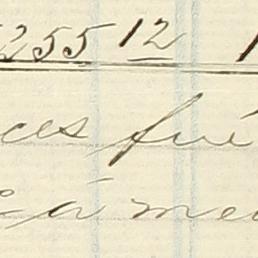 255 12
ces fué
á me